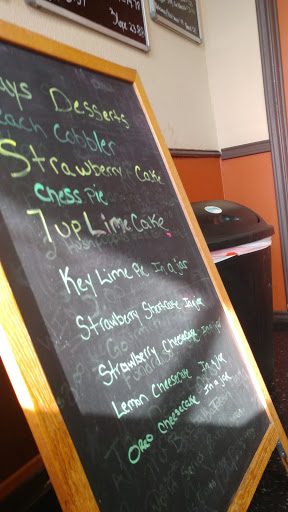 ays Desserts
each Cobbler
Strawberry Cake
Chess Pie
7 up Lime Cake
Key Lime Pie In a jar
Strawberry Shortcake In jar
Strawberry Cheesecake In a jar
Lemon Cheesecake In a jar
Oreo Cheesecake In a jar